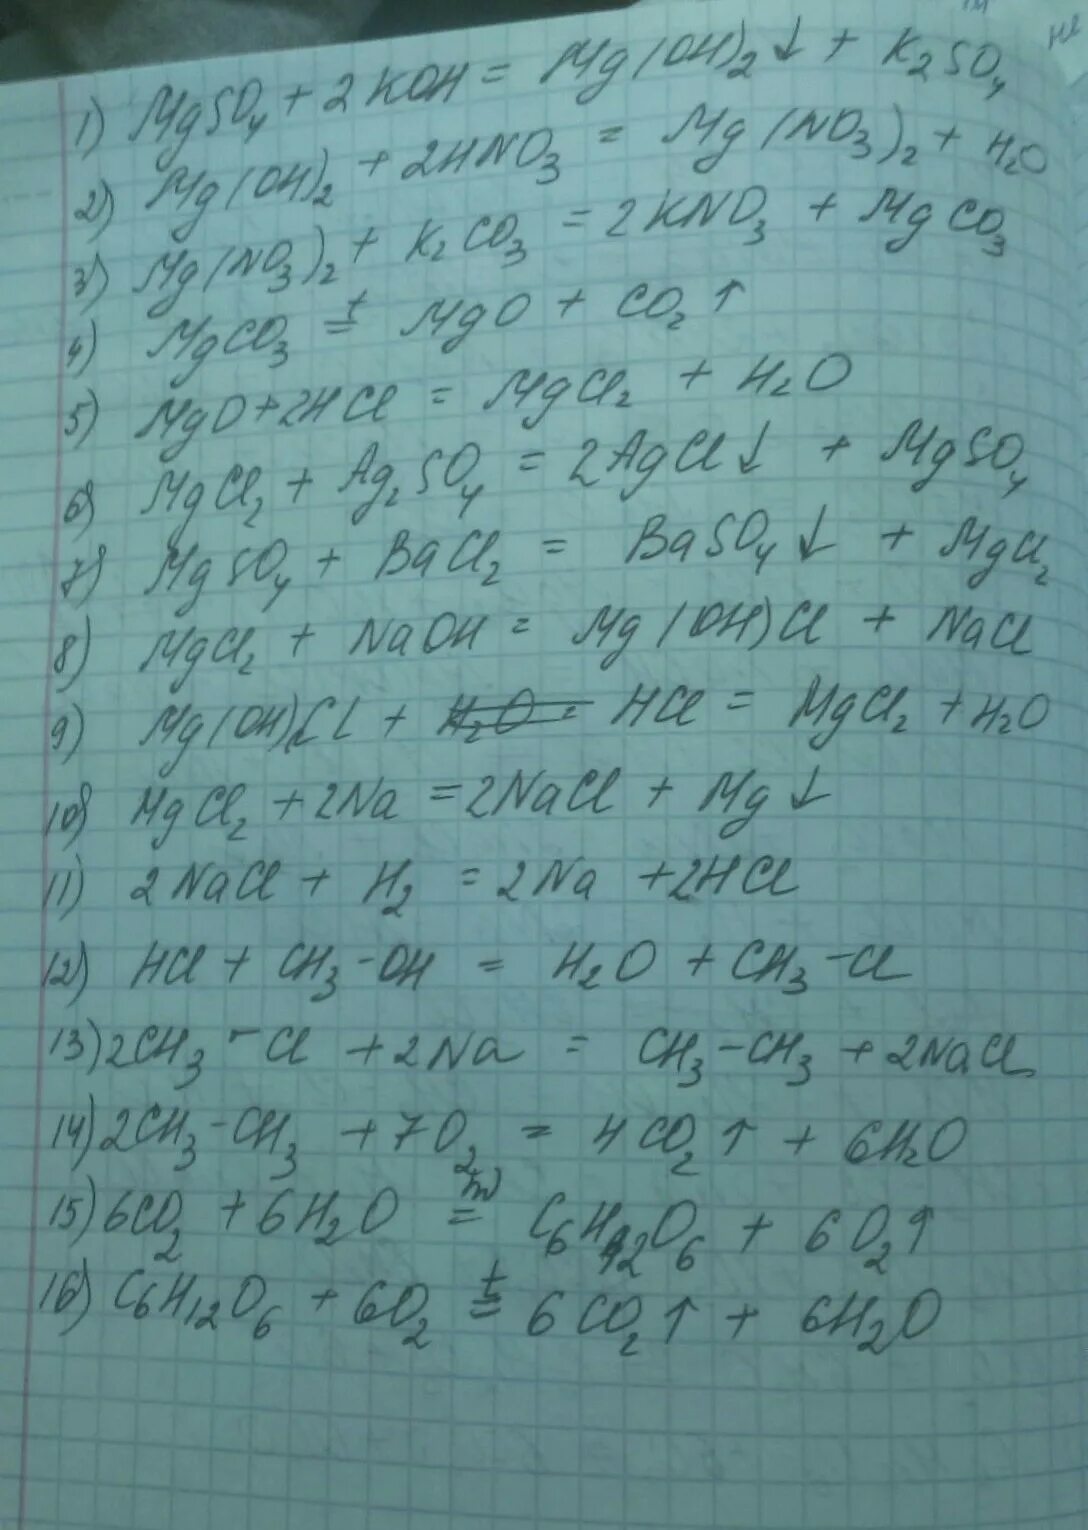 1) MgSO₄ + 2KOH = Mg(OH)₂↓ + K₂SO₄
2) Mg(OH)₂ + 2HNO₃ = Mg(NO₃)₂ + H₂O
3) Mg(NO₃)₂ + K₂CO₃ = 2KNO₃ + MgCO₃
4) MgCO₃ =ᵗ MgO + CO₂↑
5) MgO + 2HCl = MgCl₂ + H₂O
6) MgCl₂ + Ag₂SO₄ = 2AgCl↓ + MgSO₄
7) MgSO₄ + BaCl₂ = BaSO₄↓ + MgCl₂
8) MgCl₂ + NaOH = Mg(OH)Cl + NaCl
9) Mg(OH)Cl + ~~H₂O =~~ HCl = MgCl₂ + H₂O
10) MgCl₂ + 2Na = 2NaCl + Mg↓
11) 2NaCl + H₂ = 2Na + 2HCl
12) HCl + CH₃-OH = H₂O + CH₃-Cl
13) 2CH₃-Cl + 2Na = CH₃-CH₃ + 2NaCl
14) 2CH₃-CH₃ + 7O₂ = 4CO₂↑ + 6H₂O
15) 6CO₂ + 6H₂O =ʰᵛ C₆H₁₂O₆ + 6O₂↑
16) C₆H₁₂O₆ + 6O₂ =ᵗ 6CO₂↑ + 6H₂O